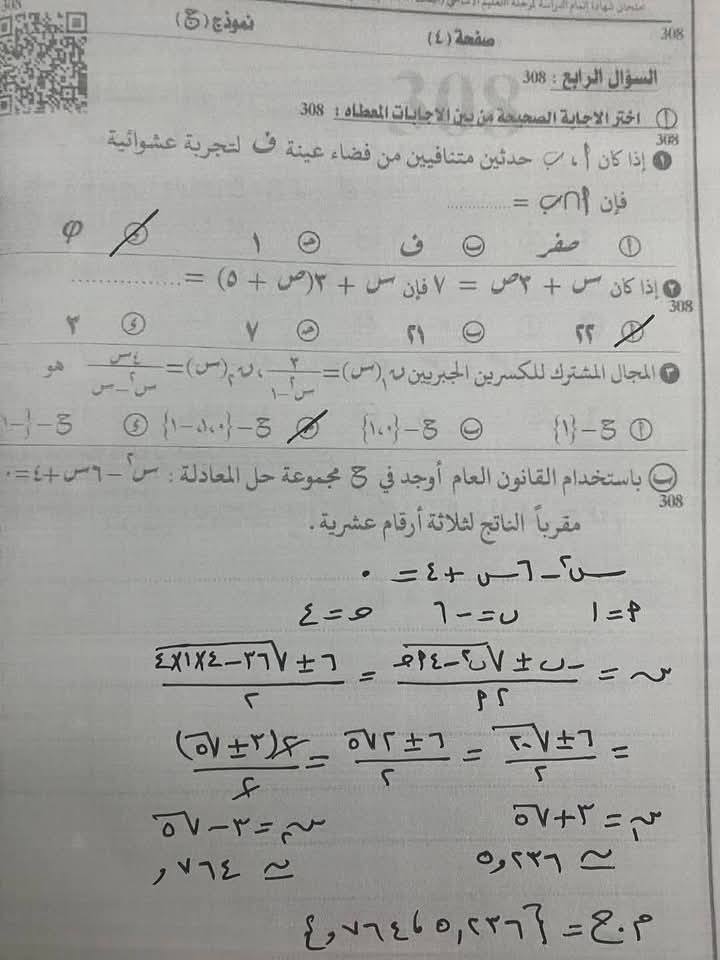 امتحان شهادة إتمام الدراسة لمرحلة التعليم الأساسي
308
308 صفحة (٤) نموذج (ج)
السؤال الرابع : 308
أ اختر الاجابة الصحيحة من بين الاجابات المعطاه : 308
308
١ إذا كان أ ، ب حدثين متنافيين من فضاء عينة ف لتجربة عشوائية
فإن أ ∩ ب = ............
أ صفر ب ف ج ١ د φ
٢ إذا كان س + ٣ص = ٧ فإن س + ٣(ص + ٥) = ................
308
أ ٢٢ ب ٢١ ج ٧ د ٣
٣ المجال المشترك للكسرين الجبريين ن١(س) = ٣/(س٢ - ١) ، ن٢(س) = ٤س/(س٢ - س) هو
أ ح - {١} ب ح - {٠،١} ج ح - {٠،١،-١} د ح - {-١
ب باستخدام القانون العام أوجد في ح مجموعة حل المعادلة : س٢ - ٦س + ٤ = ٠
308
مقرباً الناتج لثلاثة أرقام عشرية .
س٢ - ٦س + ٤ = ٠
أ = ١ ب = -٦ ج = ٤
س = (-ب ± √(ب٢ - ٤أج))/٢أ = (٦ ± √(٣٦ - ٤×١×٤))/٢
= (٦ ± √٢٠)/٢ = (٦ ± ٢√٥)/٢ = ٢(٣ ± √٥)/٢
س١ = ٣ + √٥ س٢ = ٣ - √٥
≃ ٥,٢٣٦ ≃ ,٧٦٤
م.ح = {٥,٢٣٦ ، ,٧٦٤}